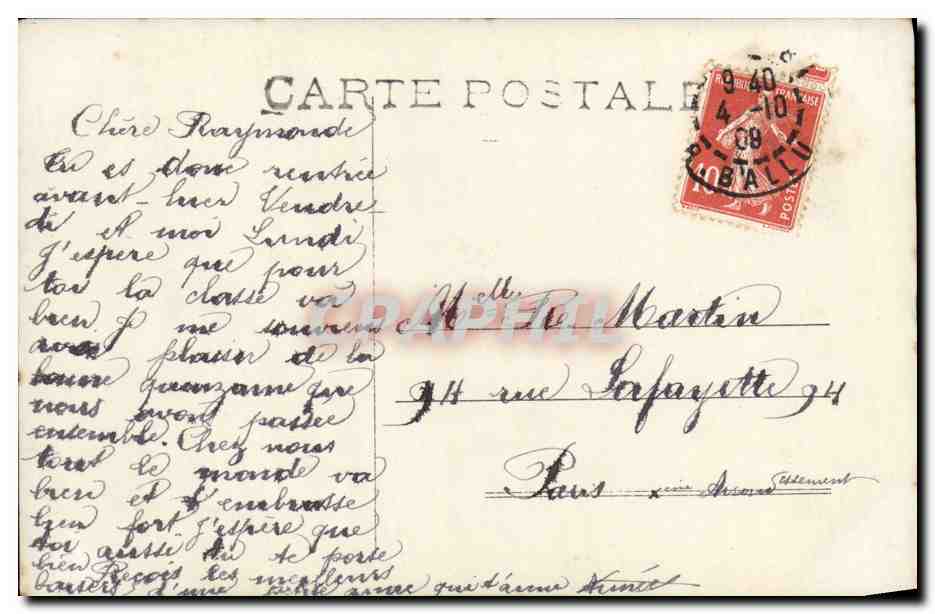 CARTE POSTALE
RÉPUBLIQUE FRANÇAISE
10
POSTES
9-40
4-10
09
R. BALLU
Chère Raymonde
tu es donc rentrée
avant-hier Vendre
di et moi Lundi
J'espère que pour
toi la classe va
bien Je me souviens
avec plaisir de la
bonne quinzaine que
nous avons passée
ensemble. Chez nous
tout le monde va
bien et t'embrasse
bien fort. J'espère que
toi aussi tu te porte
bien Reçois les meilleurs
baisers d'une petite amie qui t'aime
Melle Martin
94 rue Lafayette 94
Paris xeme Arrondissement
CPAPHIL